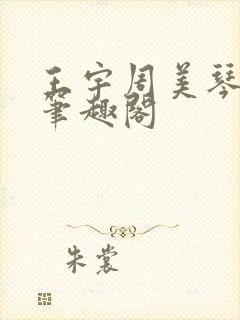 王宇周美琴
笔趣阁
朱裳